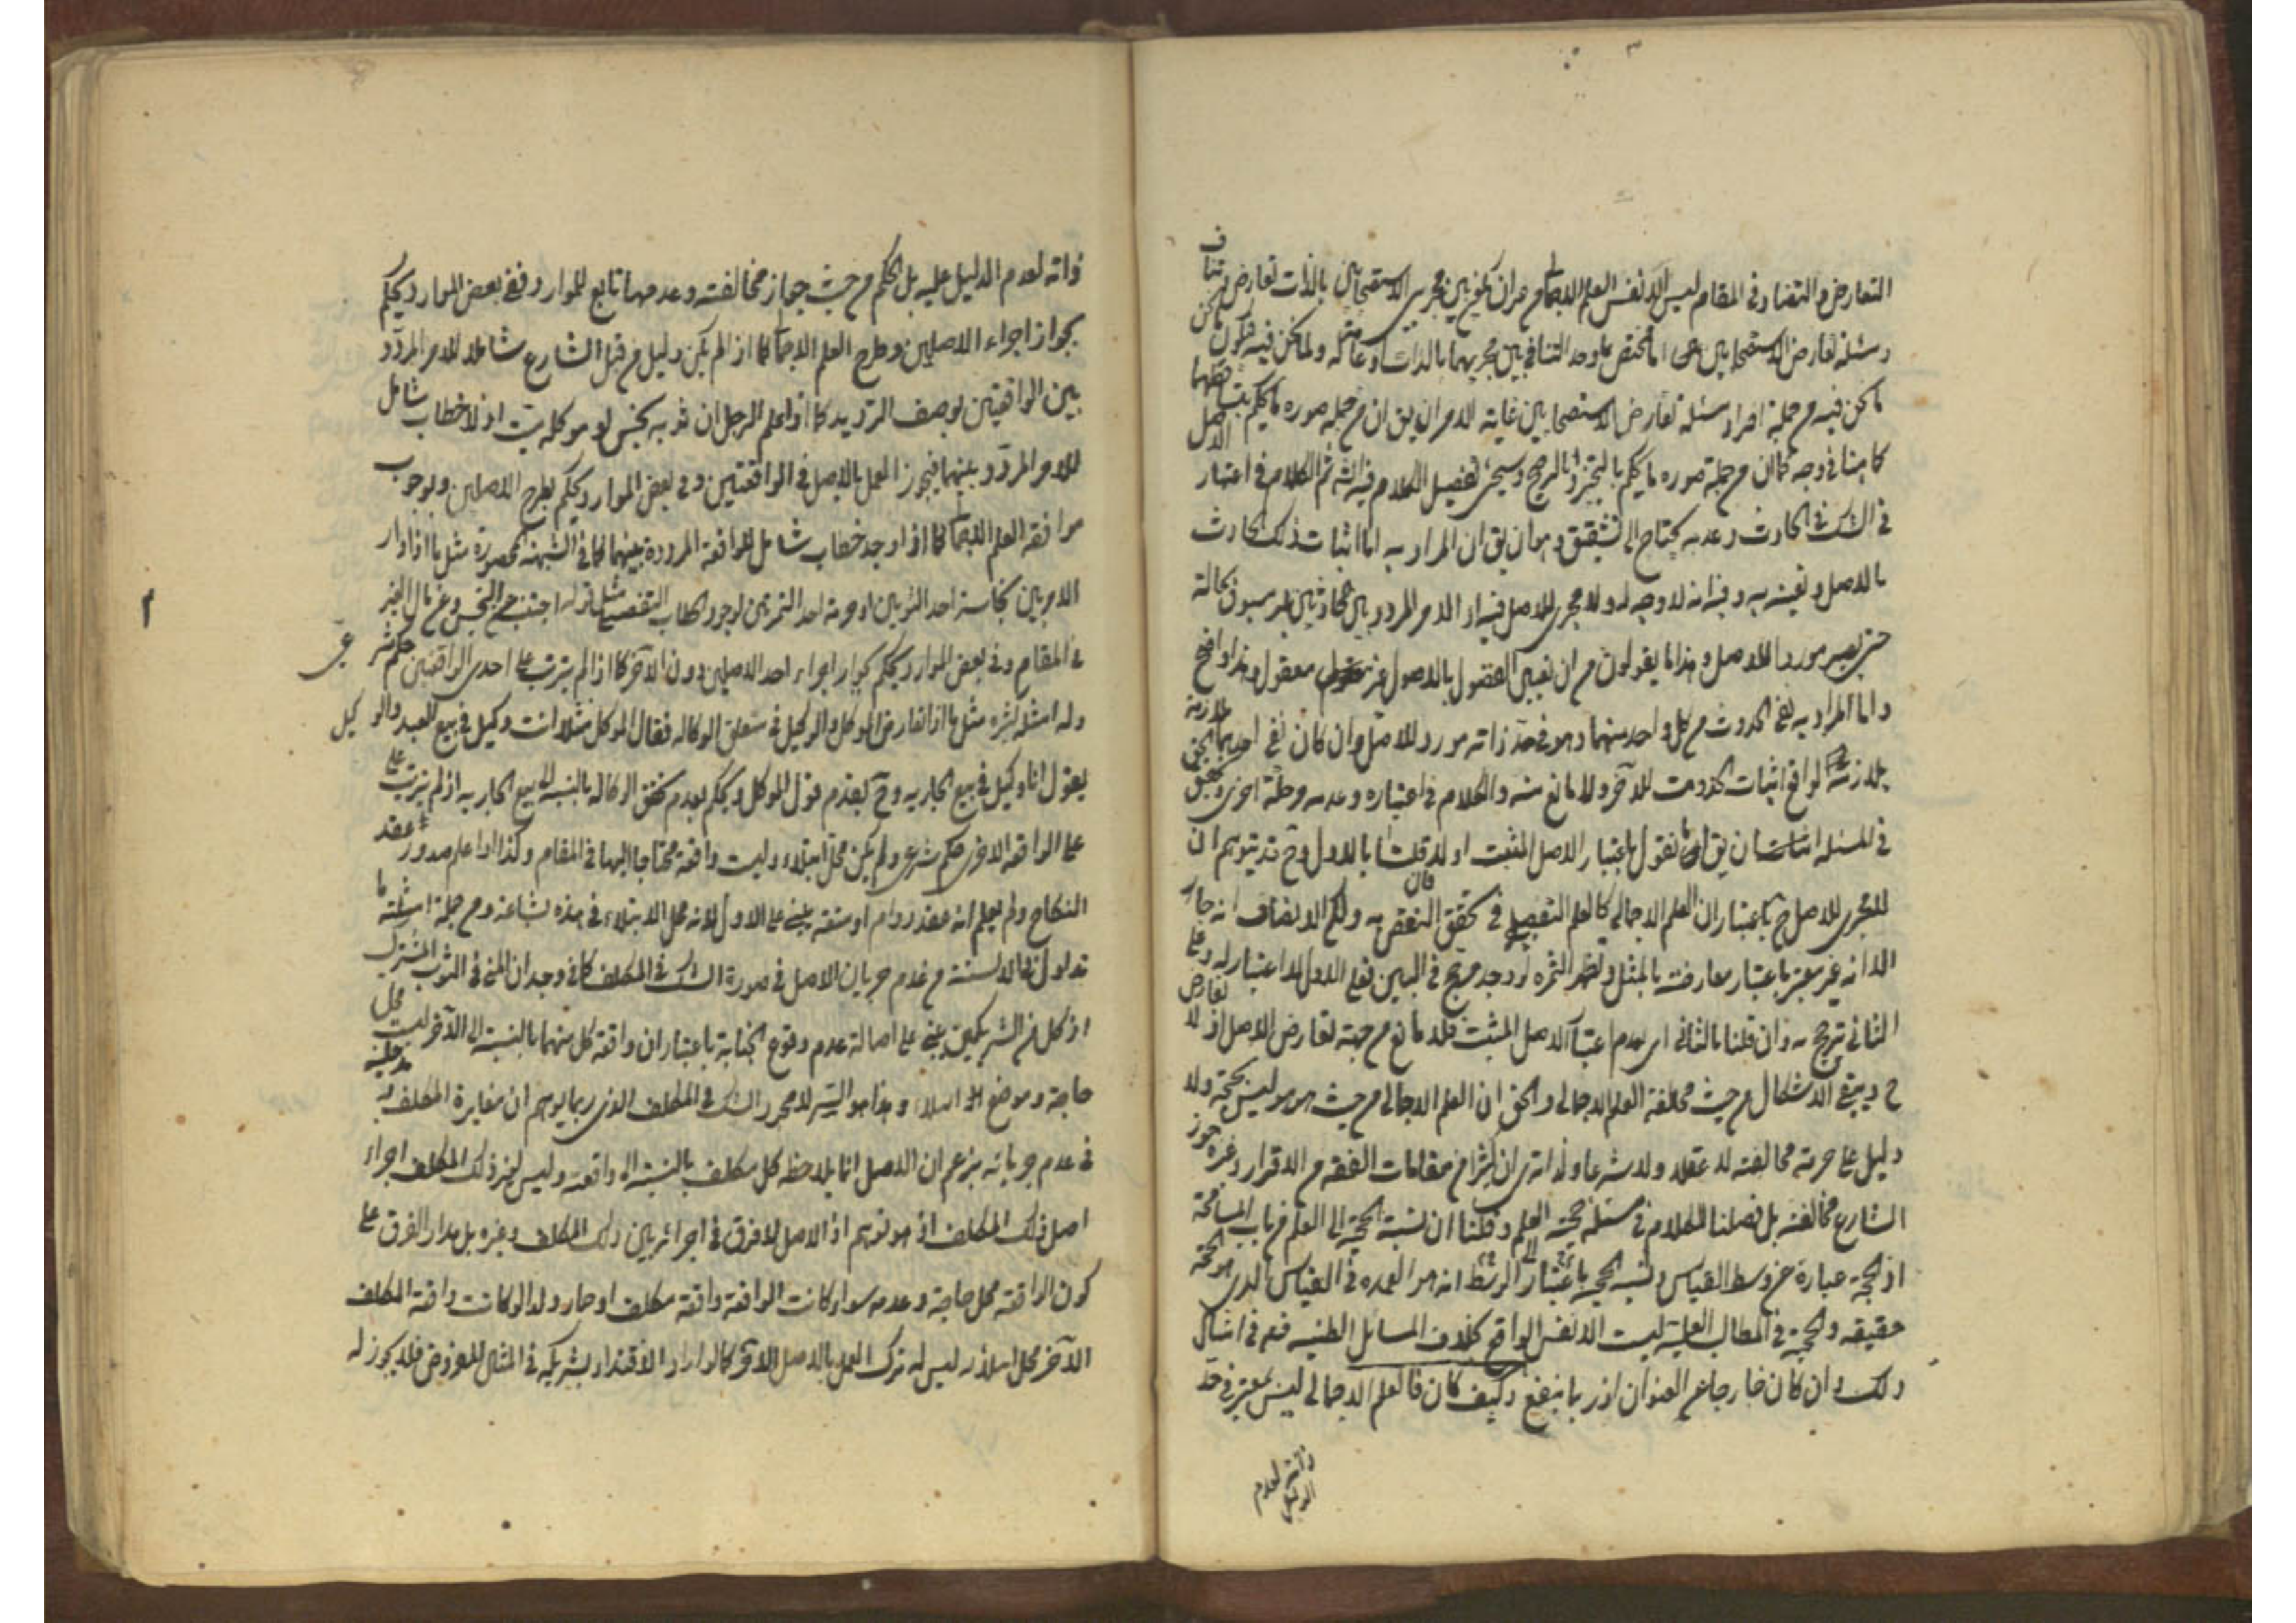 التعارض و التضاد فى المقام ليس الا نفس العلم الاجمالى من دون ان يكون بين مجرى الاستصحابين بالذات تعارض و تناف
و مسئلة تعارض الاستصحابين هى اما مختص بما وجد التنافى بين مجريهما بالذات او عامة له و لما نحن فيه فيكون ما نحن
ما نحن فيه من جملة افراد مسئلة تعارض الاستصحابين غاية الامر ان يق ان من جملة صوره ما يحكم بتساقطهما
كما هنا فى وجه كما ان من جملة صوره ما يحكم بالتخيير او بالترجيح و سيجئ تفصيل الكلام فيه انش ثم الكلام فى اعتبار الاصل
فى الشك فى الحادث و عدمه يحتاج الى تشقيق و هو ان يق ان المراد به اما اثبات ذلك الحادث
بالاصل و تعيينه به و فيه انه لا وجه له و لا مجرى للاصل فيه اذ الامر المردد بين الحادثين غير مسبوق بحالة
حتى يصير موردا للاصل و هذا ما يقولون من ان تعيين الحادث بالاصول غير معقول و هذا واضح
و اما المراد به نفى الحدوث من كل واحد منهما و هو فى حد ذاته مورد للاصل و ان كان نفى احدهما يلازمه
لملازمته الواقع اثبات الحدوث للآخر و لا مانع منه و الكلام فى اعتباره و عدمه و جملة اخرى تحقيق
فى المسئلة ان يق انا نقول باعتبار الاصل المثبت او لا فان قلنا بالاول و ح قد يتوهم ان
لا مجرى للاصل ح باعتبار ان العلم الاجمالى كالعلم التفصيلى فى تحقق النقض به و لكن الانصاف انه جار
الا انه غير معتبر باعتبار معارضته بالمثل و تظهر الثمرة لو وجد مرجح فى البين فعلى الاول لا اعتبار له و على
الثانى ترجح به و ان قلنا بالثانى اى بعدم اعتبار الاصل المثبت فلا مانع من جهة تعارض الاصل اذ لا تعارض
ح و يبقى الاشكال من حيث مخالفة العلم الاجمالى و الحق ان العلم الاجمالى من حيث هو هو ليس بحجة و لا
دليل على حرمة مخالفته لا عقلا و لا شرعا و لذا ترى ان كثيرا من مقامات الفقه من الاقرار و غيره جوز
الشارع مخالفته بل فصلنا الكلام فى مسئلة حجية العلم و قلنا ان نسبة الحجية الى العلم من باب المسامحة
اذ الحجة عبارة عن وسط القياس و نسبة الحجية باعتبار الى الوسط انه هو العمدة فى القياس الذى هو الحجة
حقيقة و الحجة فى المطالب العلمية ليست الا نفس الواقع بخلاف المسائل الظنية فهم فى امثال
ذلك و ان كان خارجا عن العنوان اذ ربما ينفع و كيف كان فالعلم الاجمالى ليس بمعتبر فى حد
ذاته لعدم الدليل
ذاته لعدم الدليل عليه بل الحكم من حيث جواز مخالفته و عدمها تابع للموارد ففى بعض الموارد يحكم
بجواز اجراء الاصلين و طرح العلم الاجمالى كما اذا لم يكن دليل من قبل الشارع شاملا للامر المردد
بين الواقعتين بوصف الترديد كما اذا علم الرجل ان ثوبه نجس او موكله ميت اذ لا خطاب شامل
للامر المردد بينهما فيجوز العمل بالاصل فى الواقعتين و فى بعض الموارد يحكم بطرح الاصلين و بوجوب
موافقة العلم الاجمالى كما اذا وجد خطاب شامل للواقعة المرددة بينهما كما فى الشبهة المحصورة مثل ما اذا دار
الامر بين نجاسة احد الثوبين او حرمة احد الثمرتين لوجود خطاب التفصيلى مثل قوله اجتنب عن النجس و عن مال الغير
فى المقام و فى بعض الموارد يحكم بجواز اجراء احد الاصلين دون الآخر كما اذا لم يترتب على احدى الواقعتين حكم شرعى
و له امثلة كثيرة مثل ما اذا تعارض الموكل و الوكيل فى متعلق الوكالة فقال الموكل مثلا انت وكيل فى بيع العبد و الوكيل
يقول انا وكيل فى بيع الجارية و ح يقدم قول الموكل و يحكم بعدم تحقق الوكالة بالنسبة الى بيع الجارية اذ لم يترتب
على الواقعة الاخرى حكم شرعى و لم يكن محل ابتلاء و ليست واقعة محتاجا اليها فى المقام و كذا اذا علم صدور عقد
النكاح و لم يعلم انه عقد دوام او متعة يبنى على الاول لانه محل الابتلاء فى هذه الساعة و من جملة امثلته ما
تداول فى الالسنة من عدم جريان الاصل فى صورة الشك فى المكلف كما فى وجدان المنى فى الثوب المشترك
اذ كل من الشريكين يبنى على اصالة عدم وقوع الجنابة باعتبار ان واقعة كل منهما بالنسبة الى الآخر ليست محل
حاجة و موضع ابتلاء و هذا هو السر لا مجرد الشك فى المكلف الذى ربما يوهم ان مغايرة المكلف مدخلية
فى عدم جريانه بزعم ان الاصل انما يلاحظه كل مكلف بالنسبة الى واقعته و ليس لغير ذلك المكلف اجراء
اصل ذلك المكلف اذ هو توهم اذ الاصل لا فرق فى اجرائه بين ذلك المكلف و غيره بل مدار الفرق على
كون الواقعة محل حاجة و عدمه سواء كانت الواقعة واقعة مكلف او حمار و لذا لو كانت واقعة المكلف
الآخر محل ابتلائه ليس له ترك العمل بالاصل الآخر كما لو اراد الاقتداء بشريكه فى المثال المفروض فلا يجوز له